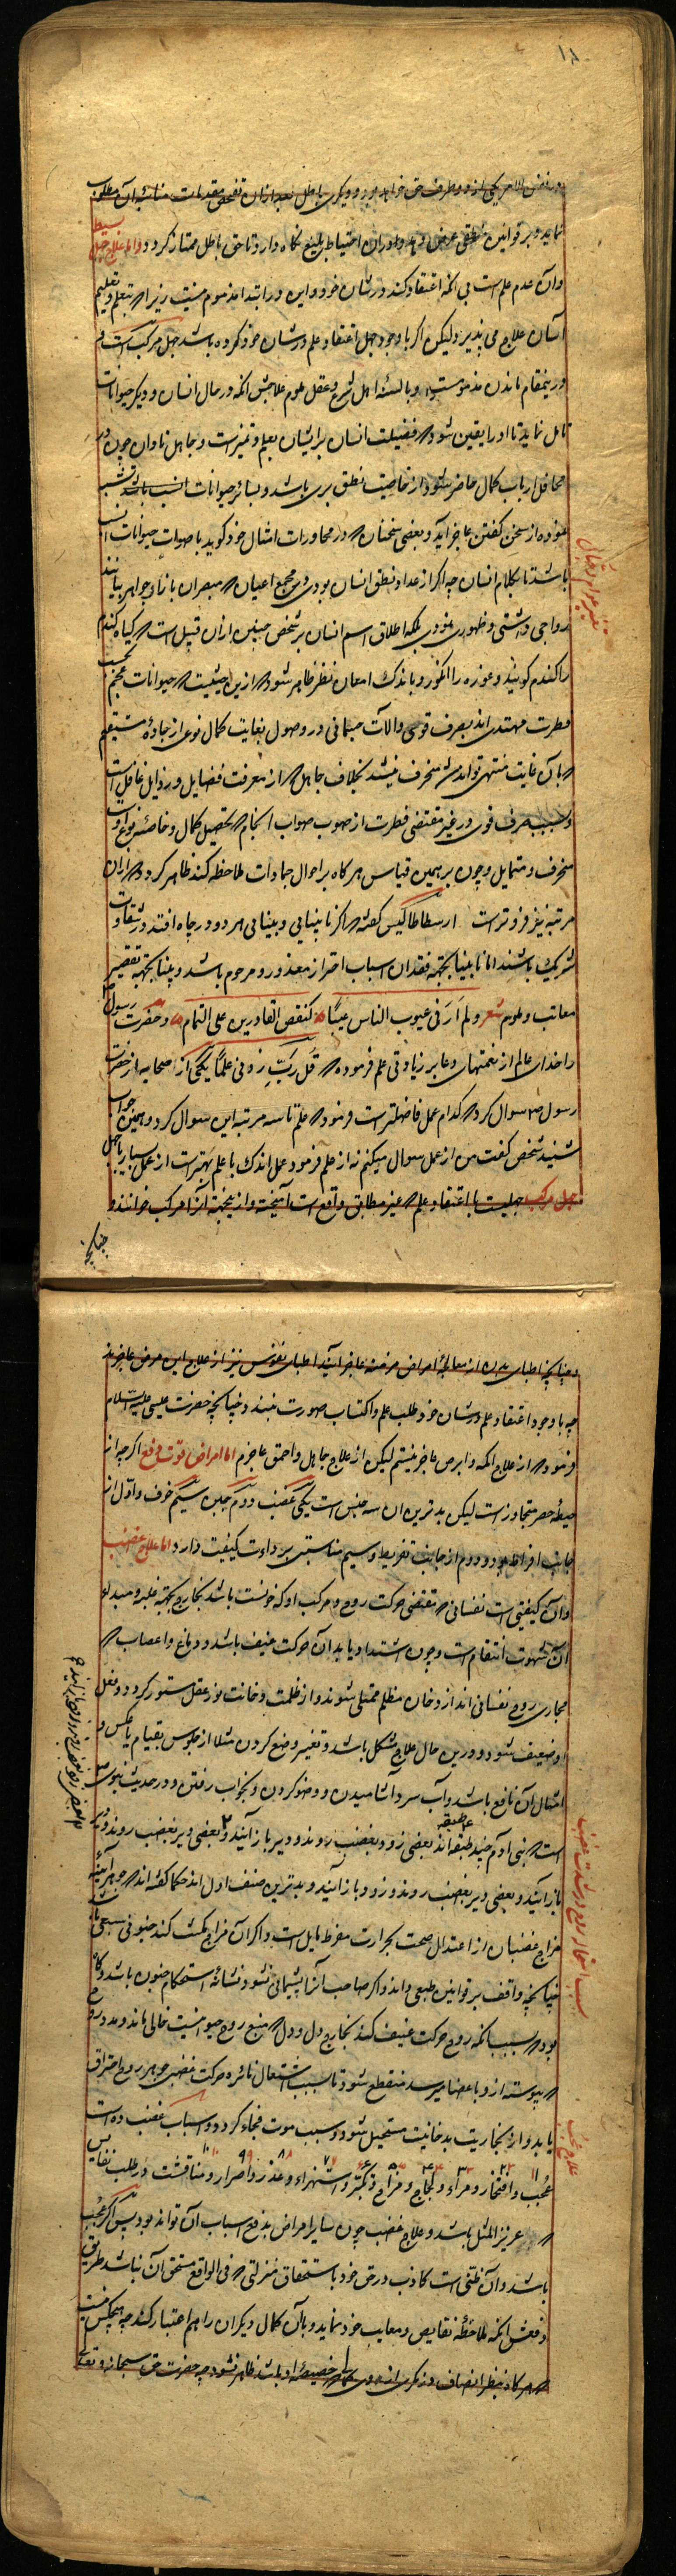 ۱۸
در نفس الامر یکی از دو طرف حق خواهد بود و دیگری باطل بعد ازان تفحص مقدمات مناسبهٔ آن مطلوب
نماید و بر قوانین منطقی عرض دهد و دران احتیاط بلیغ نگاه دارد تا حق باطل ممتاز گردد و اما علاج جهل بسیط
و آن عدم علم است بی انکه اعتقاد کند در شان خود و این در ابتدا مذموم نیست زیراکه بتعلم و تعلیم
آسان علاج می پذیرد و لیکن اگر با وجود جهل اعتقاد علم در شان خود کرده باشد جهل مرکب است و
درینمقام ماندن مذموم است و بالسنهٔ اهل شرع و عقل ملوم علاجش انکه در حال انسان و دیگر حیوانات
تامل نماید تا او را یقین شود که فضیلت انسان برایشان بعلم و تمیز است و جاهل نادان چون در
محافل ارباب کمال حاضر شود از خاصیت نطق بری باشد و بسائر حیوانات انسب باشد
نموده از سخن گفتن عاجز آید و بعضی سخنان که در محاورات امثال خود گوید باصوات حیوانات انسب
باشد تا بکلام انسان چه اگر از عداد نطق انسان بودی در مجمع اعیان که مبصران بازار جواهر بیانند
رواجی داشتی و ظهوری نمودی بلکه اطلاق اسم انسان بر شخص چنین ازان قبیل است که گیاه گندم
را گندم گویند و غوره را انگور و باندک امعان نظر ظاهر شود که ازین حیثیت که حیوانات عجم بحسب
فطرت مهتدی اند بصرف قوی و الآت جسمانی در وصول بغایت کمال نوعی از جادهٔ مستقیم
که بآن غایت منتهی تواند شد منحرف نیشد بخلاف جاهل که از معرفت فضایل و رذایل غافل است
و بسبب صرف قوی در غیر مقتضی فطرت از صوب صواب انجام که تحصیل کمال و خاصئه نوع اوست
منحرف و متمایل و چون بر همین قیاس هرگاه بر احوال جمادات ملاحظه کند ظاهر گردد که ازان
مرتبه نیز فروتر است ارسطاطالیس گفته که اگر نابینایی و بینایی هر دو در چاه افتند در شقاوت
شریک باشند اما نابینا بجهة فقدان اسباب احتراز معذور و مرحوم باشد و بینا بجهة تقصیر
معاتب و ملوم شعر ولم اَرَ فی عیوب الناس عیبًا کنقص القادرین علی التمام و حضرت رسول
را خدای عالم از نعمتهای زیادتی علم فرموده که قُل رَبِّ زِدنی عِلماً یکی از صحابه از حضرت
رسول ص سوال کرد که کدام عمل فاضلتر است فرمود که علم تا سه مرتبه این سوال کرد و همین جواب
شنید شخص گفت من از عمل سوال میکنم نه از علم فرمود عمل اندک با علم بهتر است از عمل بسیار با جهل
جهل مرکب جهلیست با اعتقاد علم که غیر مطابق واقع است آمیخته و از ینجهة آنرا مرکب خوانند و
چنانکه
و چنانچه اطبای بدن از معالجهٔ امراض مزمنه عاجز آیند اطبای نفوس نیز از علاج این مرض عاجزند
چه با وجود اعتقاد علم در شان خود طلب علم و اکتساب صورت نبندد چنانچه حضرت عیسی علیه السلام
فرمود که از علاج اکمه و ابرص عاجز نیستم لیکن از علاج جاهل و احمق عاجزم اما امراض قوت دفع اگرچه از
حیطهٔ حصر متجاوز است لیکن بدترین ان سه جنس است یکی غضب دوم جبن سیم خوف و اول از
جانب افراط بود و دوم از جانب تفریط و سیم مناسبتی برداءت کیفیت دارد اما علاج غضب
و آن کیفیتی است نفسانی که مقتضی حرکت روح و مرکب او که خونست باشد بخارج بجهة غلبه و مبدء
آن شهوت انتقام است و چون اشتداد یابد آن حرکت عنیف باشد و دماغ و اعصاب که
مجاری روح نفسانی اند از دخان مظلم ممتلی شوند و از ظلمت دخانت نور عقل مستور گردد و فعل
او ضعیف شود و درین حال علاج مشکل باشد و تغییر وضع کردن مثلا از جلوس بقیام یا عکس و
امثال آن نافع باشد و آب سرد آشامیدن و وضو کردن و بخواب رفتن و در حدیث نبوی ص
است که بنی آدم چند طبقه اند بعضی زود بغضب روند و دیر باز آیند و بعضی دیر بغضب روند و
باز آیند و بعضی دیر بغضب روند و زود باز آیند و بدترین صنف اول اند حکما گفته اند که هر آینه
مزاج غضبان از اعتدال صحت بحرارت مفرط مایل است و اگر آن مزاج مکث کند جنونی سبعی باشد
چنانچه واقف بر قوانین طبعی داند و اگر صاحب آنرا پشیمانی نشود نشانهٔ استحکام جنون باشد و گاه
بود که بسبب انکه روح حرکت عنیف کند بخارج دل و دل که منبع روح حیوانیست خالی ماند و مدد روح
که پیوسته از و باعضا میرسد منقطع شود تا بسبب اشتعال نائره حرکت غضبی جوهر روح احتراق
یابد و از بخاریت بدخانیت مستحیل شود و سبب موت فجاء گردد و اسباب غضب ده است
عُجب و افتخار و مراء و لجاج و مزاح و تکبر و استهزاء و غدر و اصرار و مناقشت در طلب نفایس
که عزیز المثل باشد و علاج غضب چون سایر امراض بدفع اسباب آن تواند بود پس اگر عُجب
باشد و آن ظنی است کاذب در حق خود باستحقاق منزلتی که فی الواقع مستحق آن نباشد طریق
دفعش انکه ملاحظهٔ نقایص و معایب خود نماید و بآن کمال دیگران را هم اعتبار کند چه هیچکس نیست
که هرگاه بنظر انصاف در نگری از وی کمالی که خصیصهٔ او باشد ظاهر نشود چه حضرت حق سبحانه و تعالی